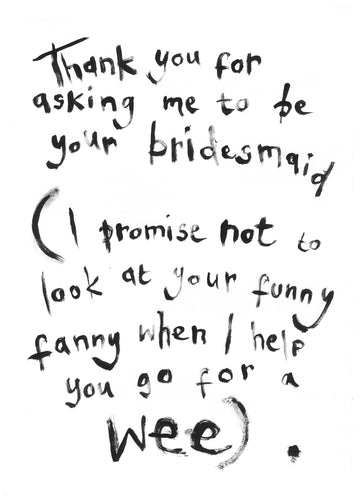 Thank you for
asking me to be
your bridesmaid
(I promise not to
look at your funny
fanny when I help
you go for a
wee).